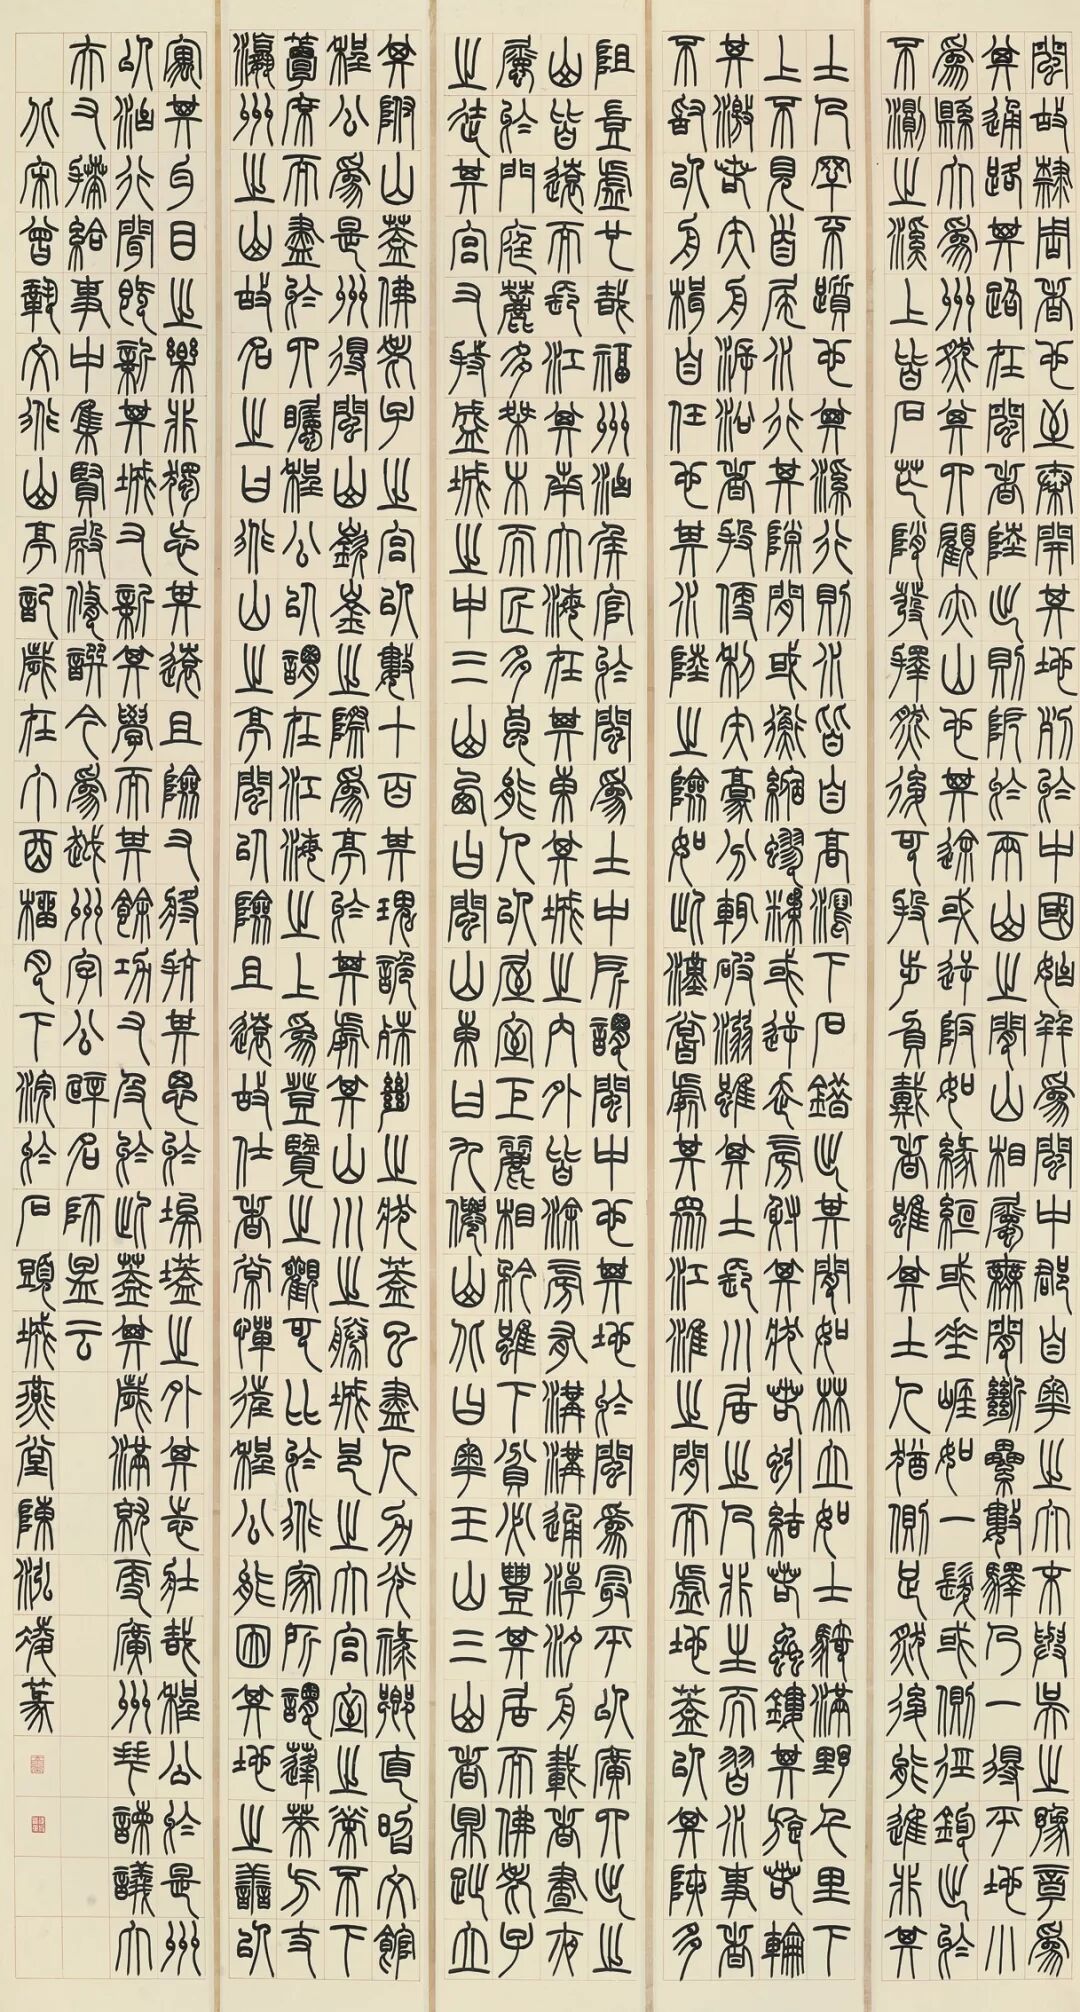 閩故隸周者也至秦開其地列於中國始幷爲閩中郡自粵之太末與吳之豫章爲
其通路其路在閩者陸出則阨於兩山之間山相屬無間斷纍數驛乃一得平地小
爲縣大爲州然其四顧亦山也其途或逆阪如緣絙或垂崖如一髮或側徑鉤出於
不測之溪上皆石芒陗發擇然後可投步負戴者雖其土人猶側足然後能進非其
土人罕不躓也其溪行則水皆自高瀉下石錯出其間如林立如士騎滿野千里下
上不見首尾水行其隙間或衡縮蟉糅或逆走旁射其狀若蚓結若蟲鏤其旋若輪
其激若矢舟泝沿者投便利失毫分輒破溺雖其土長川居之人非生而習水事者
不敢以舟楫自任也其水陸之險如此漢嘗處其衆江淮之間而虛其地蓋以其陿多
阻豈虛也哉福州治侯官於閩爲土中所謂閩中也其地於閩爲最平以廣四出之
山皆遠而長江其南大海在其東其城之內外皆涂旁有溝溝通潮汐舟載者晝夜
屬於門庭麓多桀木而匠多良能人以屋室巨麗相矜雖下貧必豐其居而佛老子
之徒其宮又特盛城之中三山西曰閩山東曰九僊山北曰粵王山三山者鼎趾立
其附山蓋佛老子之宮以數十百其瑰詭殊絕之狀蓋已盡人力光祿卿直昭文館
程公爲是州得閩山嶔崟之際爲亭於其處其山川之勝城邑之大宮室之榮不下
簟席而盡於四矚程公以謂在江海之上爲登覽之觀可比於道家所謂蓬萊方丈
瀛州之山故名之曰道山之亭閩以險且遠故仕者常憚往程公能因其地之善以
寓其耳目之樂非獨忘其遠且險又將抗其思於埃壒之外其志壯哉程公於是州
以治行聞旣新其城又新其學而其餘功又及於此蓋其歲滿就更廣州拜諫議大
夫又拜給事中集賢殿修譔今爲越州字公辟名師孟云
北宋曾鞏文道山亭記歲在丁酉榴月下浣於石頭城燕堂陳泓菱篆